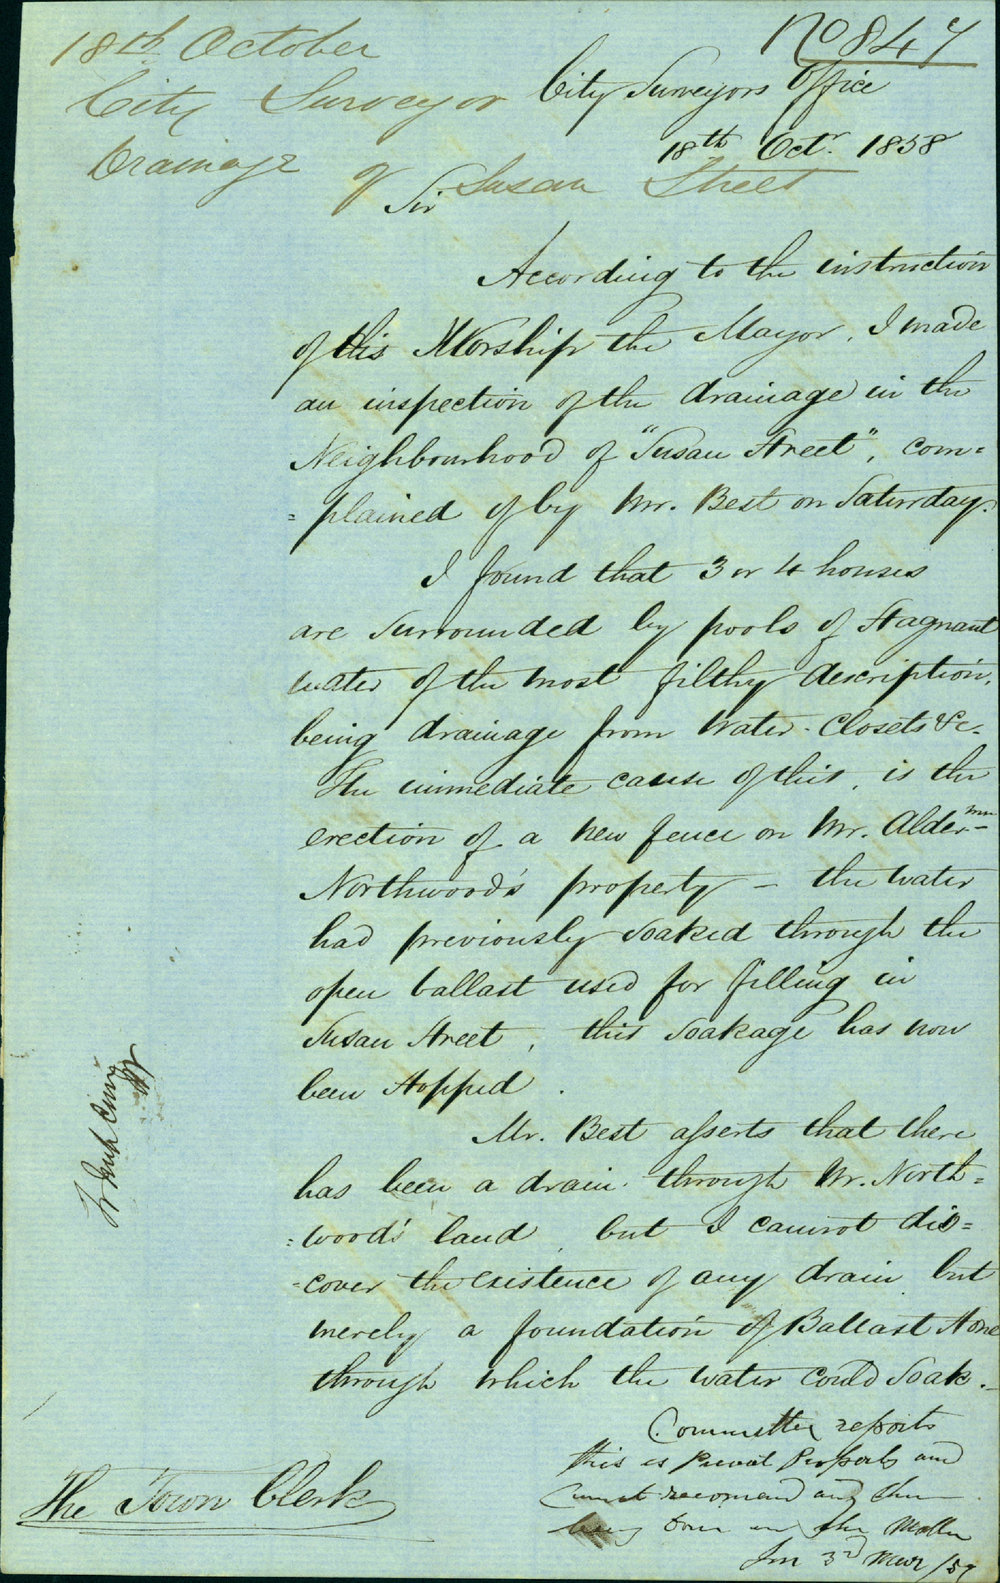 No 847
18th October
City Surveyor
Drainage
of Susan Street
City Surveyors Office
18th Octr. 1858
Sir
According to the instruction
of His Worship the Mayor, I made
an inspection of the drainage in the
Neighbourhood of "Susan Street", com=
=plained of by Mr. Best on Saturday.
I found that 3 or 4 houses
are surrounded by pools of stagnant
water of the most filthy description,
being drainage from Water-Closets &c.
The immediate cause of this, is the
erection of a new fence on Mr. Aldermn
Northwood's property – the water
had previously soaked through the
open ballast used for filling in
Susan Street, this soakage has now
been stopped.
Mr. Best asserts that there
has been a drain through Mr. North=
=wood's land, but I cannot dis=
=cover the existence of any drain but
merely a foundation of Ballast stone
through which the water could soak.
Committee reports
this is Privat Property and
Cannot recomend any thin
being Don in the Matter
3rd Mar /59
The Town Clerk